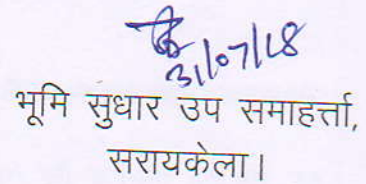 31/07/18
भूमि सुधार उप समाहर्त्ता,
सरायकेला।